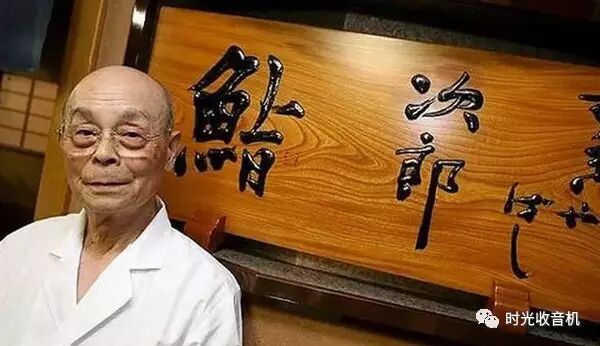 やばし
次郎
鮨
时光收音机